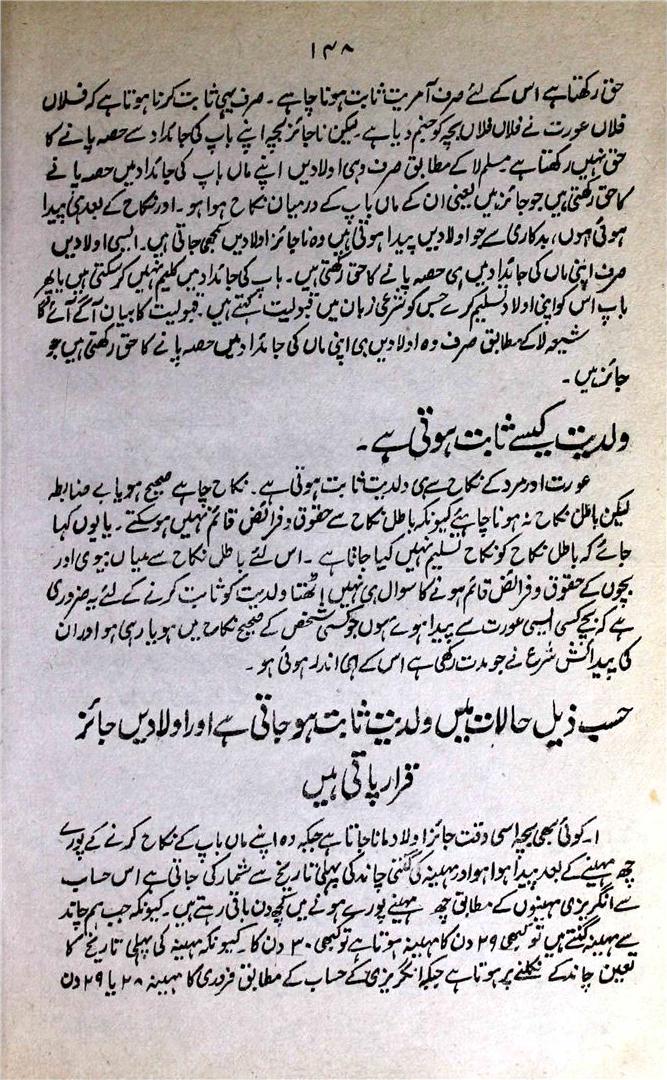 ۱۴۸
حق رکھتا ہے اس کے لئے صرف آمریت ثابت ہونا چاہے ۔ صرف یہی ثابت کرنا ہوتا ہے کہ فلاں
فلاں عورت نے فلاں فلاں بچہ کو جنم دیا ہے ۔ لیکن ناجائز بچہ اپنے باپ کی جائداد سے حصہ پانے کا
حق نہیں رکھتا ہے ۔ مسلم لا کے مطابق صرف وہی اولادیں اپنے ماں باپ کی جائداد میں حصہ پانے
کا حق رکھتی ہیں جو جائز ہیں یعنی ان کے ماں باپ کے درمیان نکاح ہوا ہو ۔ اور نکاح کے بعد ہی پیدا
ہوئی ہوں ، بدکاری سے جو اولادیں پیدا ہوتی ہیں وہ ناجائز اولادیں سمجھی جاتی ہیں ۔ ایسی اولادیں
صرف اپنی ماں کی جائداد میں ہی حصہ پانے کا حق رکھتی ہیں ۔ باپ کی جائداد میں کلیم نہیں کر سکتی ہیں یا پھر
باپ اس کو اپنی اولاد تسلیم کرے جس کو شرعی زبان میں قبولیت کہتے ہیں ۔ قبولیت کا بیان آگے آئے گا
شیعہ لا کے مطابق صرف وہ اولادیں ہی اپنی ماں کی جائداد میں حصہ پانے کا حق رکھتی ہیں جو
جائز ہیں ۔
ولدیت کیسے ثابت ہوتی ہے ۔
عورت اور مرد کے نکاح سے ہی ولدیت ثابت ہوتی ہے ۔ نکاح چاہے صحیح ہو یا بے ضابطہ
لیکن باطل نکاح نہ ہونا چاہئے کیونکہ باطل نکاح سے حقوق و فرائض قائم نہیں ہو سکتے ۔ یا یوں کہا
جائے کہ باطل نکاح کو نکاح تسلیم نہیں کیا جاتا ہے ۔ اس لئے باطل نکاح سے میاں بیوی اور
بچوں کے حقوق و فرائض قائم ہونے کا سوال ہی نہیں اٹھتا ولدیت کو ثابت کرنے کے لئے یہ ضروری
ہے کہ بچے کسی ایسی عورت سے پیدا ہوے ہوں جو کسی شخص کے صحیح نکاح میں ہو یا رہی ہو اور ان
کی پیدائش شرع نے جو مدت رکھی ہے اس کے ہی اندر ہوئی ہو ۔
حسب ذیل حالات میں ولدیت ثابت ہو جاتی ہے اور اولادیں جائز
قرار پاتی ہیں
۱۔ کوئی بھی بچہ اسی وقت جائز اولاد مانا جاتا ہے جبکہ وہ اپنے ماں باپ کے نکاح کرنے کے پورے
چھ مہینے کے بعد پیدا ہوا ہو اور مہینہ کی گنتی چاند کی پہلی تاریخ سے شمار کی جاتی ہے اس حساب
سے انگریزی مہینوں کے مطابق چھ مہینے پورے ہونے میں کچھ دن باقی رہتے ہیں ۔ کیونکہ جب ہم چاند
سے مہینہ گنتے ہیں تو کبھی ۲۹ دن کا مہینہ ہوتا ہے تو کبھی ۳۰ دن کا ۔ کیونکہ مہینہ کی پہلی تاریخ کا
تعین چاند کے نکلنے پر ہوتا ہے جبکہ انگریزی کے حساب کے مطابق فروری کا مہینہ ۲۸ یا ۲۹ دن